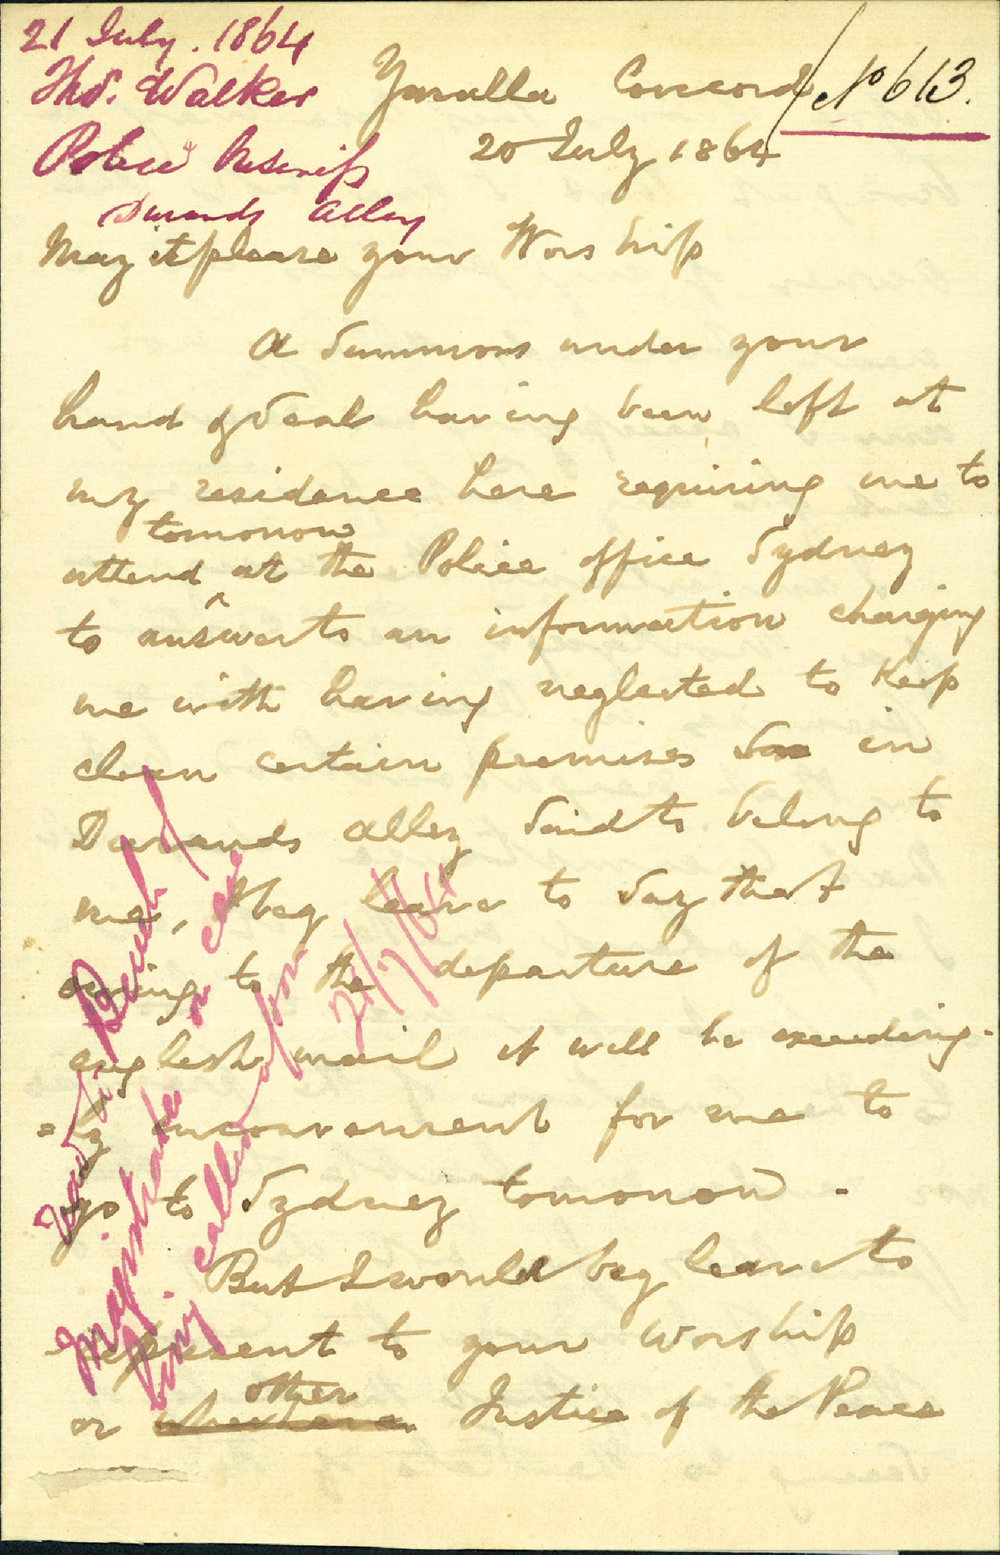 21 July. 1864
Thos. Walker
Police
Durands Alley
No 613.
Yaralla Concord
20 July 1864
May it please your Worship
A Summons under your
hand & Seal having been left at
my residence here requiring me to
tomorrow
attend at the Police office Sydney
^
to answer to an information charging
me with having neglected to Keep
clean certain premises in
Durands Alley Said to belong to
me, I beg leave to Say that
owing to the departure of the
english mail it will be exceeding-
=ly inconvenient for me to
go to Sydney tomorrow -
But I would beg leave to
represent to your Worship
other
or Justice of the Peace
Bench
Magistrate on case
being called upon
21/7/64